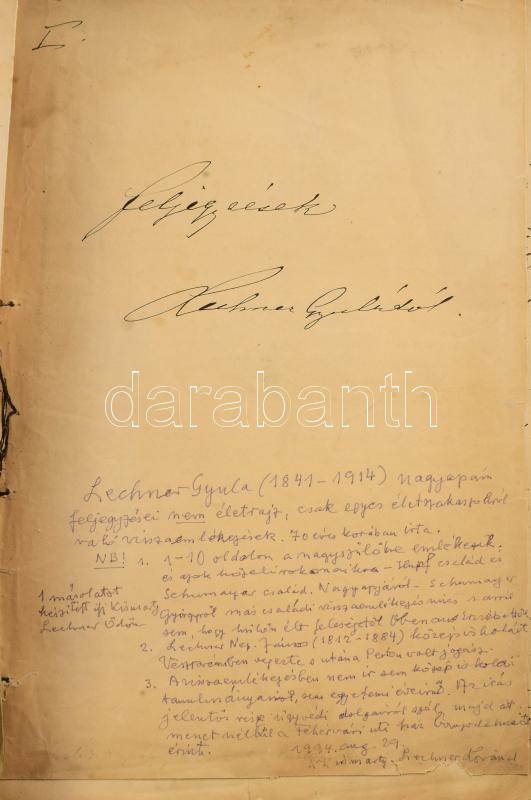 I.
feljegyzések
Lechner Gyulától.
darabanth
Lechner Gyula (1841-1914) nagyapám
feljegyzései nem életrajz, csak egyes életszakaszokról
való visszaemlékezések. 70 éves korában írta.
NB! 1. 1-10 oldalon a nagyszülőkre emlékezik
és azok közeli rokonaikra - család és
Schumayer család. Nagyapjáról - Schumayer
Györgyről más családi visszaemlékezés nincs s arra
sem, hogy mikor élt feleségétől
1 másolatot
készített ifj
Lechner Ödön
2. Lechner Nep. János (1812-1884) középiskoláit
Veszprémben végezte s utána Pesten volt jogász.
3. A visszaemlékezésben nem ír sem középiskolai
tanulmányairól, sem egyetemi éveiről. Az írás
jelentős része ügyvédi dolgairól szól, majd át-
menet nélkül a Fehérvári úti ház
érinti.
1994. aug. 29.
Lechner Lóránd